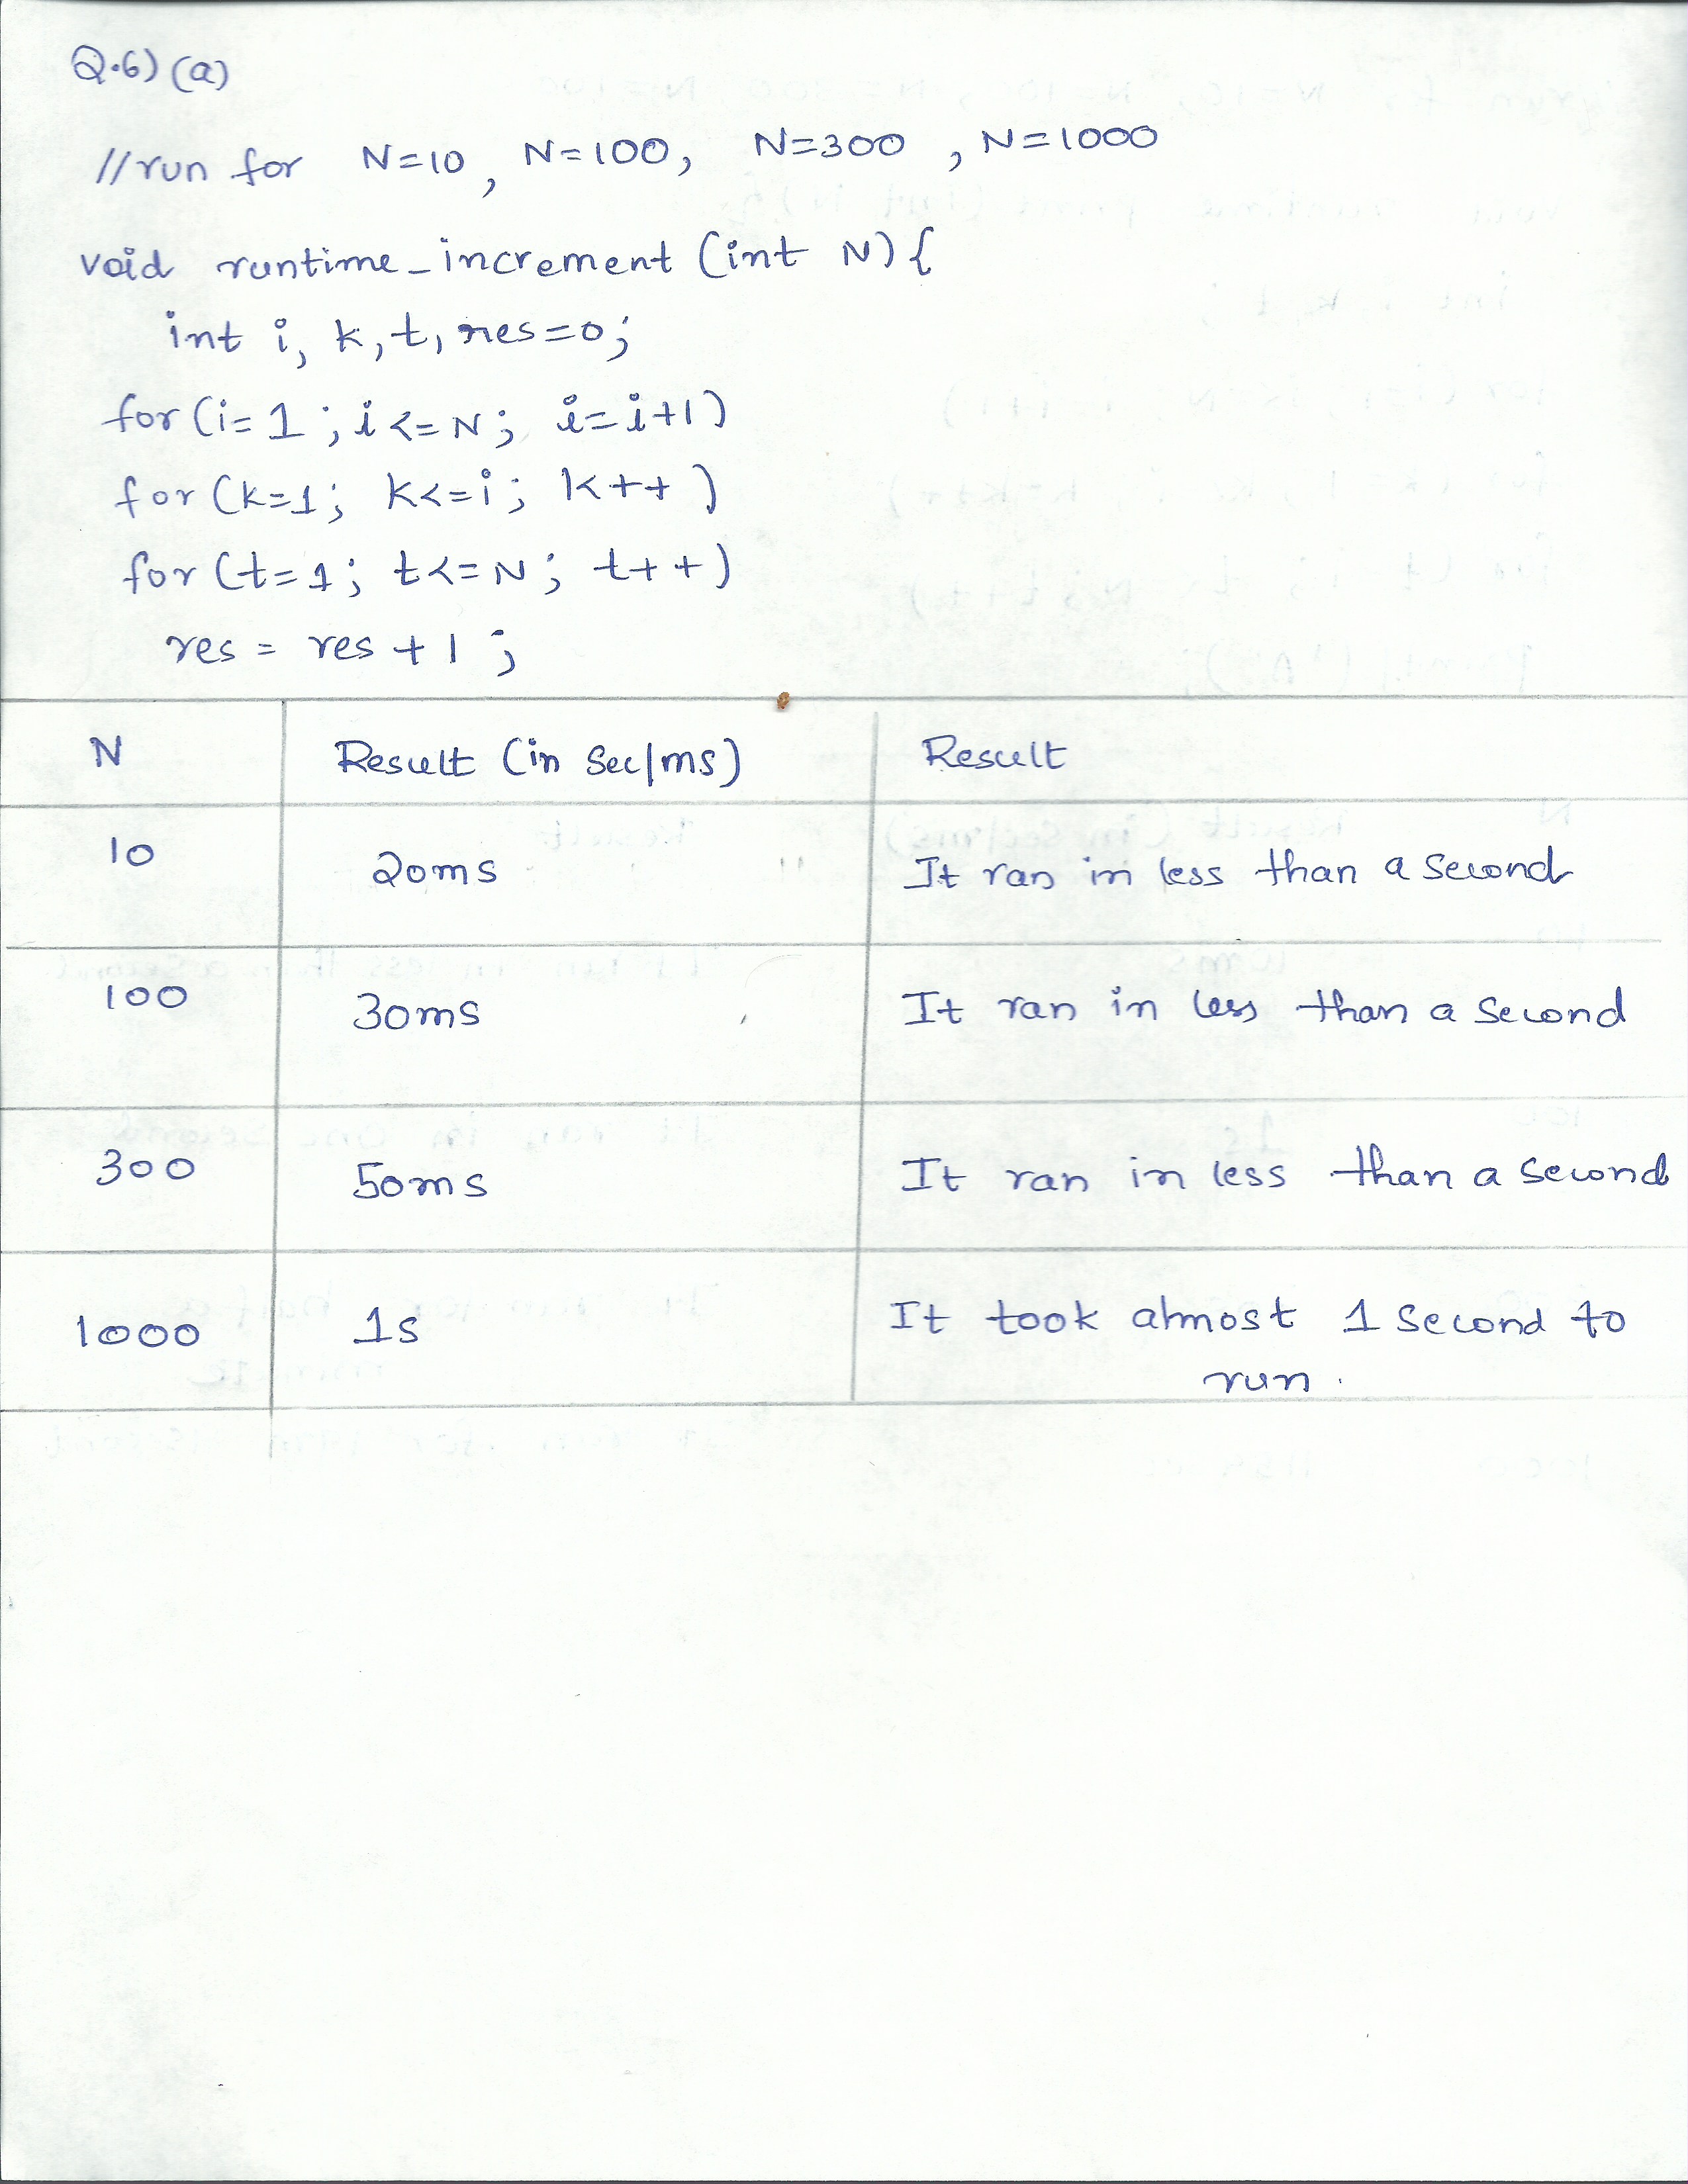 Q.6) (a)
//run for N=10, N=100, N=300, N=1000
void runtime_increment (int N) {
int i, k, t, res=0;
for (i=1; i<=N; i=i+1)
for (k=1; k<=i; k++)
for (t=1; t<=N; t++)
res = res + 1;
N Result (in Sec/ms) Result
10 20ms It ran in less than a second
100 30ms It ran in less than a second
300 50ms It ran in less than a second
1000 1s It took almost 1 second to
run.